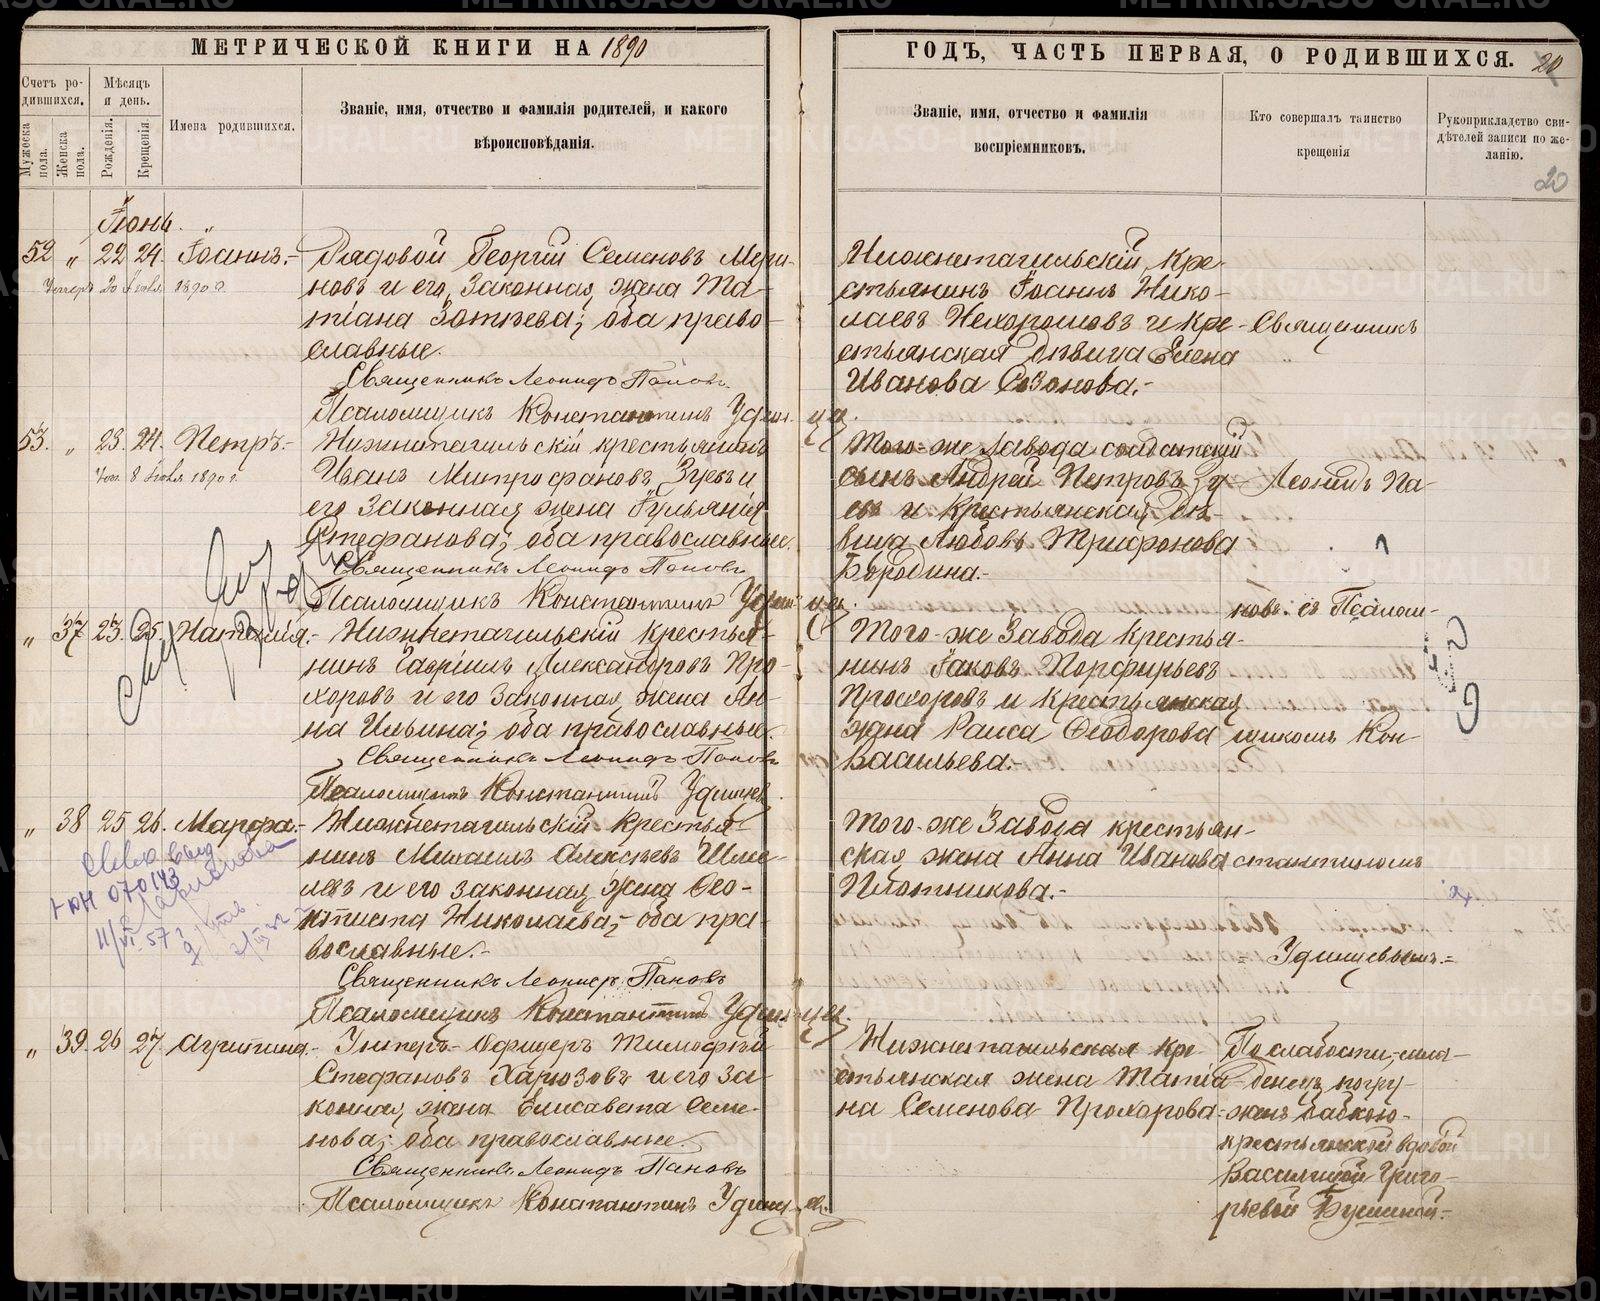 МЕТРИЧЕСКОЙ КНИГИ НА 1890
Счетъ ро-
дившихся.
Мѣсяцъ
и день.
Мужеска
пола.
Женска
пола.
Рожденія.
Крещенія
Имена родившихся.
Званіе, имя, отчество и фамилія родителей, и какого
вѣроисповѣданія.
Іюнь. „
52 „ 22 24. Іоаннъ.- Рядовой Георгій Семеновъ Мери-
новъ и его законная жена Та-
1890 г.
тіана Зотѣева; оба право-
славные.
Священникъ Леонидъ Поповъ
Псаломщикъ Константинъ Удинцев.
53. „ 23. 24. Петръ.- Нижнетагильскій крестьянинъ
8 Іюля 1890 г. Иванъ Митрофановъ Зуевъ и
его законная жена Іуліанія
Стефанова; оба православные.
Священникъ Леонидъ Поповъ
Псаломщикъ Константинъ Удинцев.
„ 37 23. 25. Наталія.- Нижнетагильскій крестья-
нинъ Гавріилъ Александровъ Про-
хоровъ и его законная жена Ан-
на Ильина; оба православные.
Священникъ Леонидъ Поповъ
Псаломщикъ Константинъ Удинцев
„ 38 25 26. Марфа.- Нижнетагильскій крестья-
нинъ Михаилъ Алексѣевъ Шме-
левъ и его законная жена Ѳео-
ктиста Николаева; оба пра-
вославные.-
Священникъ Леонидъ Поповъ
Псаломщикъ Константинъ Удинцев.
„ 39. 26 27. Агрипина.- Унтеръ-Офицеръ Тимофей
Стефановъ Харюзовъ и его за-
конная жена Елисавета Семе-
нова; оба православные.
Священникъ Леонидъ Поповъ
Псаломщикъ Константинъ Удинцев.
ЮН 070143
ГОДЪ, ЧАСТЬ ПЕРВАЯ, О РОДИВШИХСЯ.
20
Званіе, имя, отчество и фамилія
воспріемниковъ.
Кто совершалъ таинство
крещенія
Рукоприкладство сви-
дѣтелей записи по же-
ланію.
20
Нижнетагильскій кре-
стьянинъ Іоаннъ Нико-
лаевъ Нехорошковъ и кре- Священникъ
стьянская дѣвица Елена
Иванова Созонова.-
Того-же Завода солдатскій
сынъ Андрей Петровъ Зу- Леонидъ По-
евъ и крестьянская дѣ-
вица Любовь Трифонова
Бородина.-
повъ съ Псалом-
Того-же Завода крестья-
нинъ Іаковъ Порфирьевъ
Прохоровъ и крестьянская
жена Раиса Ѳеодорова щикомъ Кон-
Васильева.-
Того-же Завода крестьян-
ская жена Анна Иванова стантиномъ
Плотникова.-
Удинцевымъ.=
Нижнетагильская кре- По слабости, мла-
стьянская жена Татіа- денецъ погру-
на Семенова Прохорова. женъ бабкою
крестьянской вдовой
Василисой Григо-
рьевой Бушиной.-
METRIKI.GASO-URAL.RU